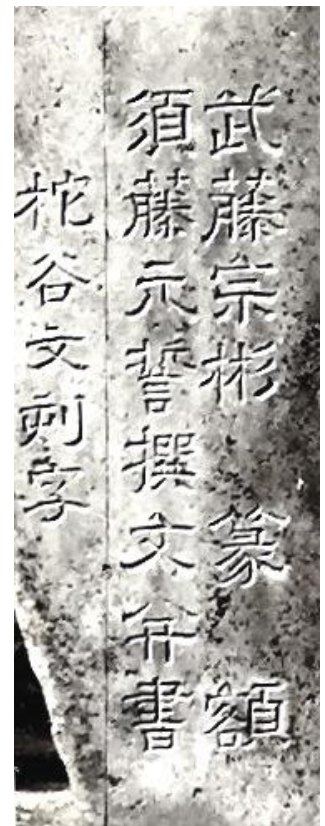 武藤宗彬 篆 額
須藤元誓撰文并書
柁谷文刻字